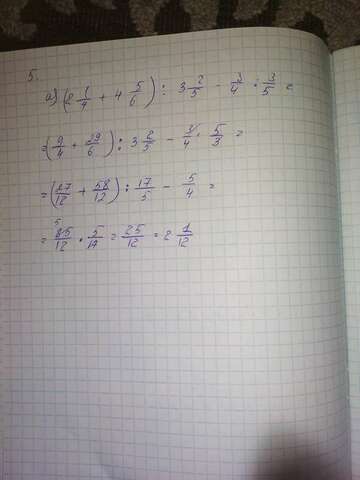 5.
а) (2 1/4 + 4 5/6) : 3 2/5 - 3/4 : 3/5 =
= (9/4 + 29/6) : 3 2/5 - 3/4 · 5/3 =
= (27/12 + 58/12) : 17/5 - 5/4 =
= 85/12 · 5/17 = 25/12 = 2 1/12